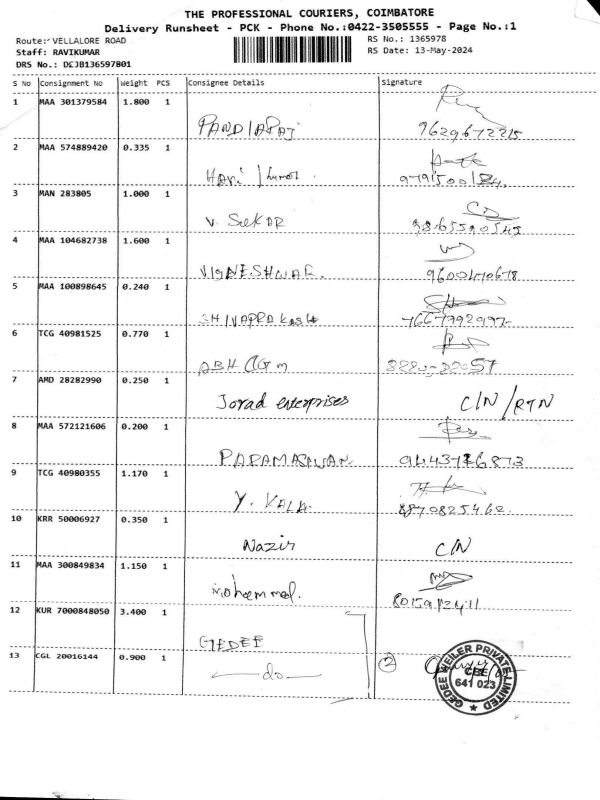 THE PROFESSIONAL COURIERS, COIMBATORE
Delivery Runsheet - PCK - Phone No.:0422-3505555 - Page No.:1
Route: VELLALORE ROAD
RS No.: 1365978
Staff: RAVIKUMAR
RS Date: 13-May-2024
DRS No.: DEJB136597801
S No Consignment No Weight PCS Consignee Details Signature
1 MAA 301379584 1.800 1
PANDIARAJ 9629672215
2 MAA 574889420 0.335 1
Hari
3 MAN 283805 1.000 1
V. SeKAR
4 MAA 104682738 1.600 1
VIGNESHWAR. 9600470678
5 MAA 100898645 0.240 1
SHIVAPRAKASH
6 TCG 40981525 0.770 1
7 AMD 28282990 0.250 1
Jorad enterprises C/N/RTN
8 MAA 572121606 0.200 1
PARAMASIVAN
9 TCG 40980355 1.170 1
Y. 8870825462.
10 KRR 50006927 0.350 1
Nazir C/N
11 MAA 300849834 1.150 1
mohammed.
12 KUR 7000848050 3.400 1
GEDEE
13 CGL 20016144 0.900 1
do 2
GEDEE WEILER PRIVATE LIMITED
CBE
641 023